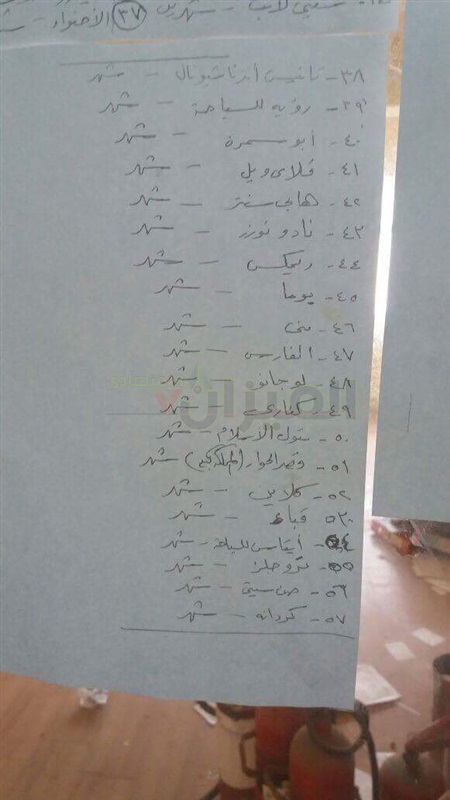 شهرين (٣٧) الأضواء -
٣٨- تانيس انترناشيونال - شهر
٣٩- رؤيه للسياحة - شهر
٤٠- أبو سمرة - شهر
٤١- فلاى ويل - شهر
٤٢- هابى سنتر - شهر
٤٣- نادو تورز - شهر
٤٤- ريمكس - شهر
٤٥- يوما - شهر
٤٦- منى - شهر
٤٧- الفارس - شهر
٤٨- لوجانو - شهر
٤٩- كنارى - شهر
٥٠- بتول الأسلام - شهر
٥١- وقصد الحوار شهر
٥٢- كلاين - شهر
٥٣- قباء - شهر
٥٤- للسياحة - شهر
٥٥- شهر
٥٦- صن سيتى - شهر
٥٧- كردانه - شهر
الميزان